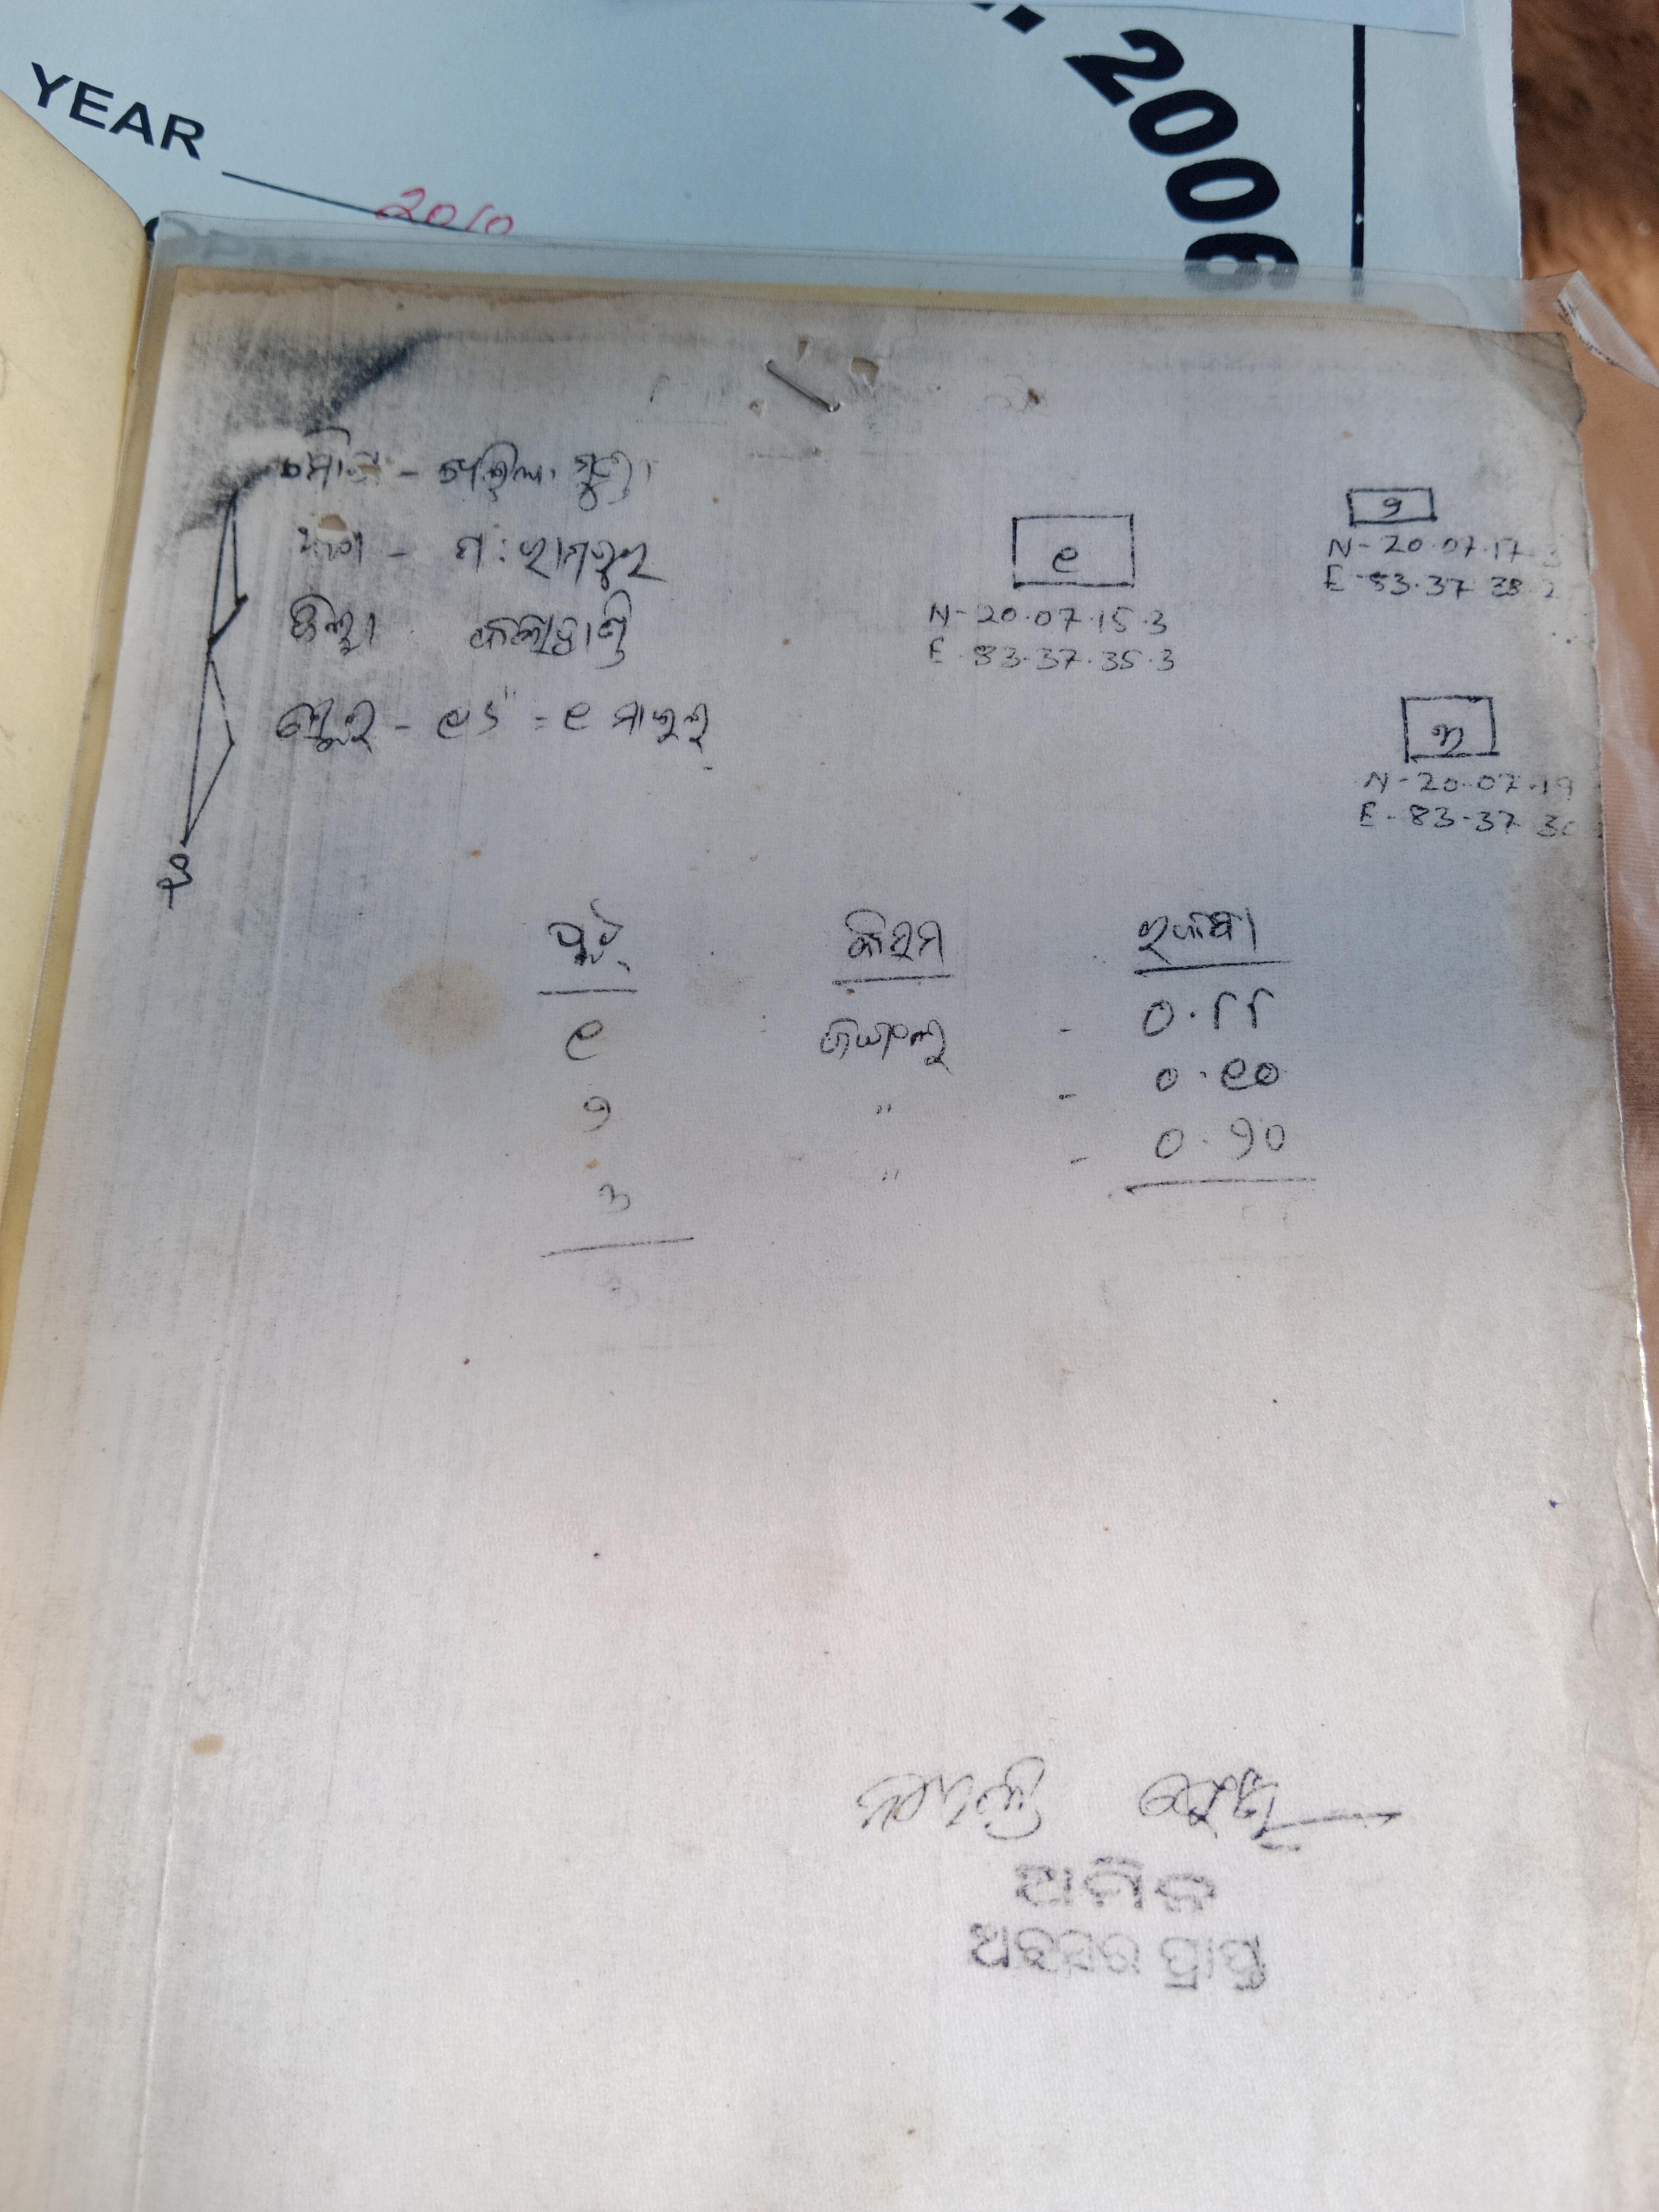 YEAR 2010
2006
ମୌଜା - ଖଲିଆ ଗୁଡା
ଥାନା - ମ: ରାମପୁର
ଜିଲ୍ଲା କଳାହାଣ୍ଡି
ସ୍କେଲ - ୧୬" = ୧ ମାଇଲ
୧
N-20.07.15.3
E 83.37.35.3
୨
N-20.07.17.3
E-83.37 38.2
୩
N-20.07.19
E-83-37 30
ଉ
ପ୍ଲଟ କିସମ ରକବା
୧ - ୦.୮୮
୨ " - ୦.୧୦
୩ " - ୦.୨୦
ଅମିନ
ଅବସର ପ୍ରାପ୍ତ